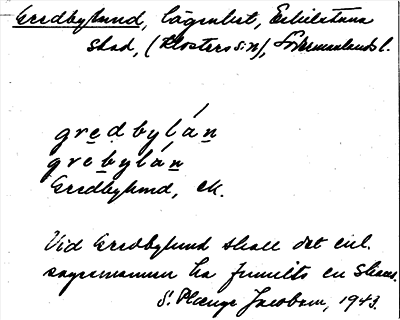 Gredbylund, lägenhet, Eskilstuna
stad, (Klosters sn), Södermanlands l.
gredbylán
grebylán
Gredbylund, ek.
Vid Gredbylund skall det enl.
sagesmannen ha funnits en skans.
S. Plaenge Jacobson, 1943.